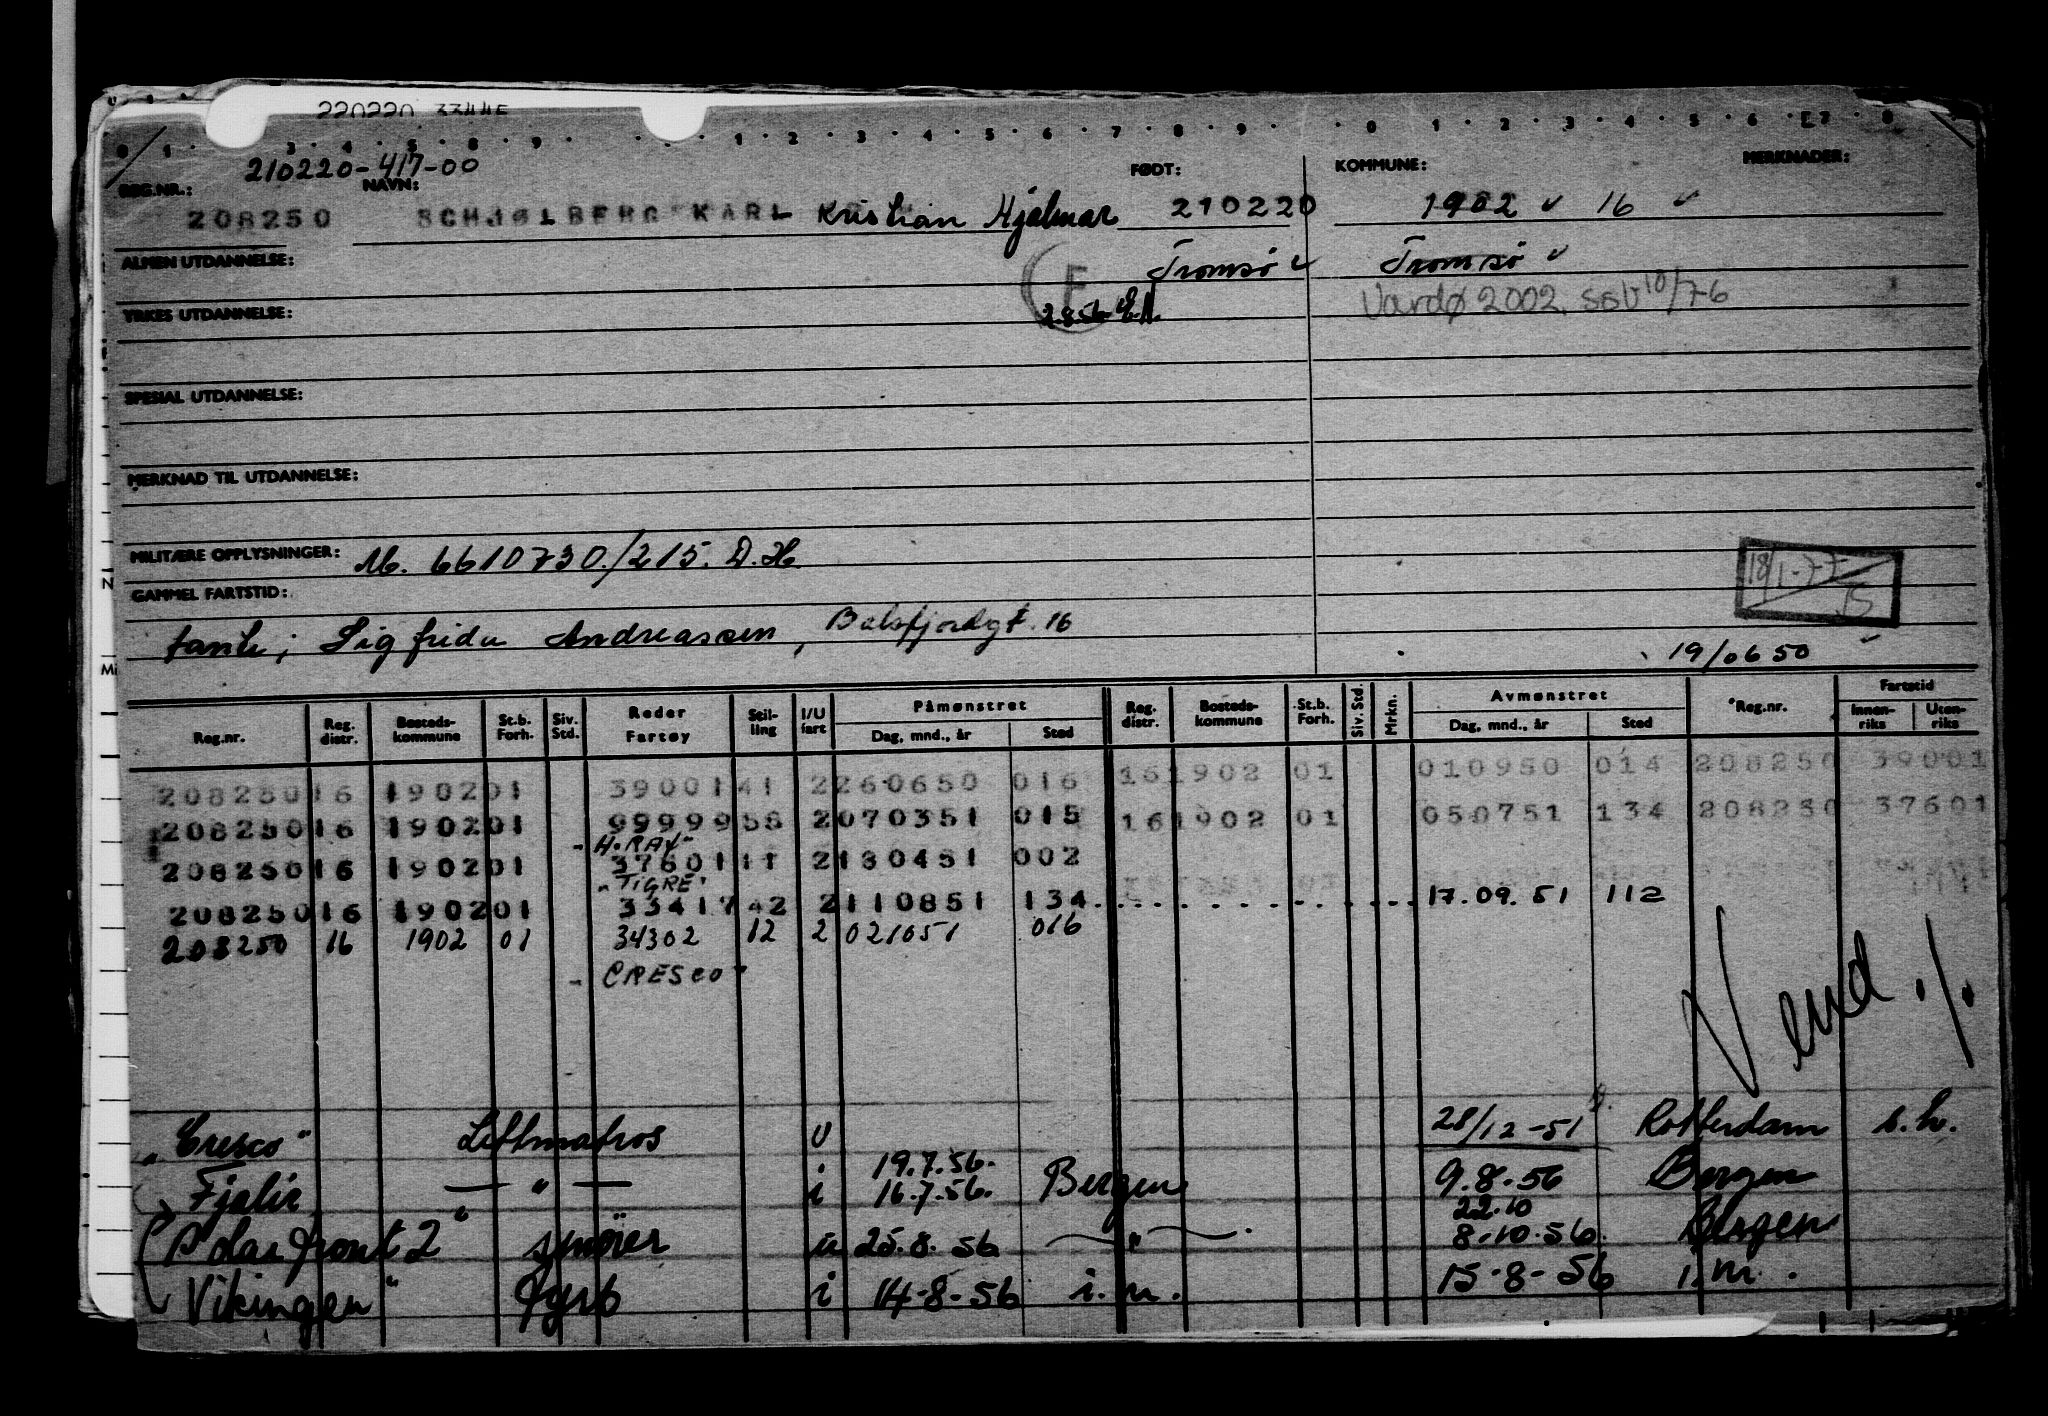 220220 33445
0 1 . 3 . 4 . 5 . 8 . 9 . . 1 . 2 . 3 . 4 . 5 . 6 . 7 . 8 . 9 . . 0 1 . 2 . 3 . 4 . 5 . 6 . 7 . 8
210220-417-00
REG.NR.: NAVN: FØDT: KOMMUNE: MERKNADER:
208250 SCHJØLBERG KARL Kristian Hjalmar 210220 1902 ✓ 16 ✓
ALMEN UTDANNELSE: Tromsø ✓ Tromsø ✓
F
YRKES UTDANNELSE: 2.8.56 Vardø 2002. 10/7-6
SPESIAL UTDANNELSE:
MERKNAD TIL UTDANNELSE:
MILITÆRE OPPLYSNINGER: M. 6610730./215. D.H.
18/1-77
JS
GAMMEL FARTSTID:
tante; Sigfrida Andreassen, Balsfjordgt. 16
19/06 50 ✓
Reg.nr. Reg. distr. Bosteds- kommune St.b. Forh. Siv. Std. Reder Fartøy Stil- ling I/U fart Påmønstret Dag, mnd., år Sted Reg. distr. Bosteds- kommune St.b. Forh. Siv. Std. Mrkn. Avmønstret Dag, mnd., år Sted Reg.nr. Fartstid Innen- riks Uten- riks
208250 16 1902 01 39001 41 2 260650 016 16 1902 01 010950 014 208250 39001
208250 16 1902 01 99999 58 2 070351 015 16 1902 01 050751 134 208250 37601
"H. RAY"
208250 16 1902 01 37601 11 2 130451 002
"TIGRE"
208250 16 1902 01 33417 42 2 110851 134 . . . . . . . . . . . . 17.09.51 112
208250 16 1902 01 34302 12 2 021051 016
"CRESCO"
Vend ./.
"Cresco" Lettmatros U 28/12-51 Rotterdam s.h.
19.7.56.
Fjalir — " — i 16.7.56. Bergen 9.8.56 Bergen
22.10
"Polarfront 2" smører u 25.8.56 — " — 8.10.56. Bergen
Vikingen" fyrb i 14-8-56 i.m. 15-8-56 i.m.